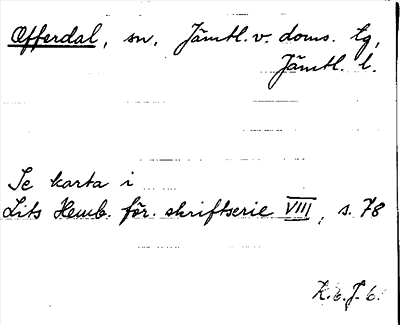 Offerdal, sn. Jämtl. v. doms. tg,
Jämtl. l.
Se karta i
Lits Hemb. för. skriftserie VIII, s. 78